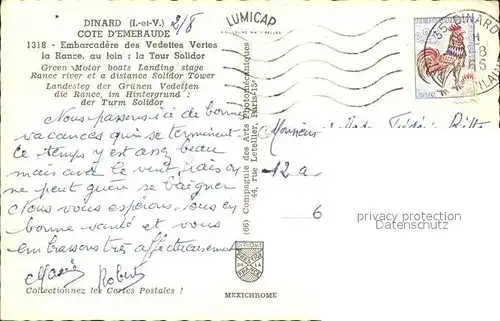 DINARD (I.-et-V.)
2/8
COTE D'EMERAUDE
1318 - Embarcadère des Vedettes Vertes
la Rance, au loin : la Tour Solidor
Green Motor boats Landing stage
Rance river et a distance Solidor Tower
Landesteg der Grünen Vedetten
die Rance, im Hintergrund :
der Turm Solidor
Nous passons ici de bonnes
vacances qui se terminent.
Le temps y est assez beau
mais avec le vent frais on
ne peut guère se baigner
Nous vous espérons tous en
bonne santé et vous
embrassons très affectueusement
Marie Robert
Collectionnez les Cartes Postales !
LUMICAP
(66) Compagnie des Arts Photomécaniques
44, rue Letellier, Paris-15e
MEXICHROME
35 DINARD
Monsieur Frédéric
12 a
6
privacy protection
Datenschutz